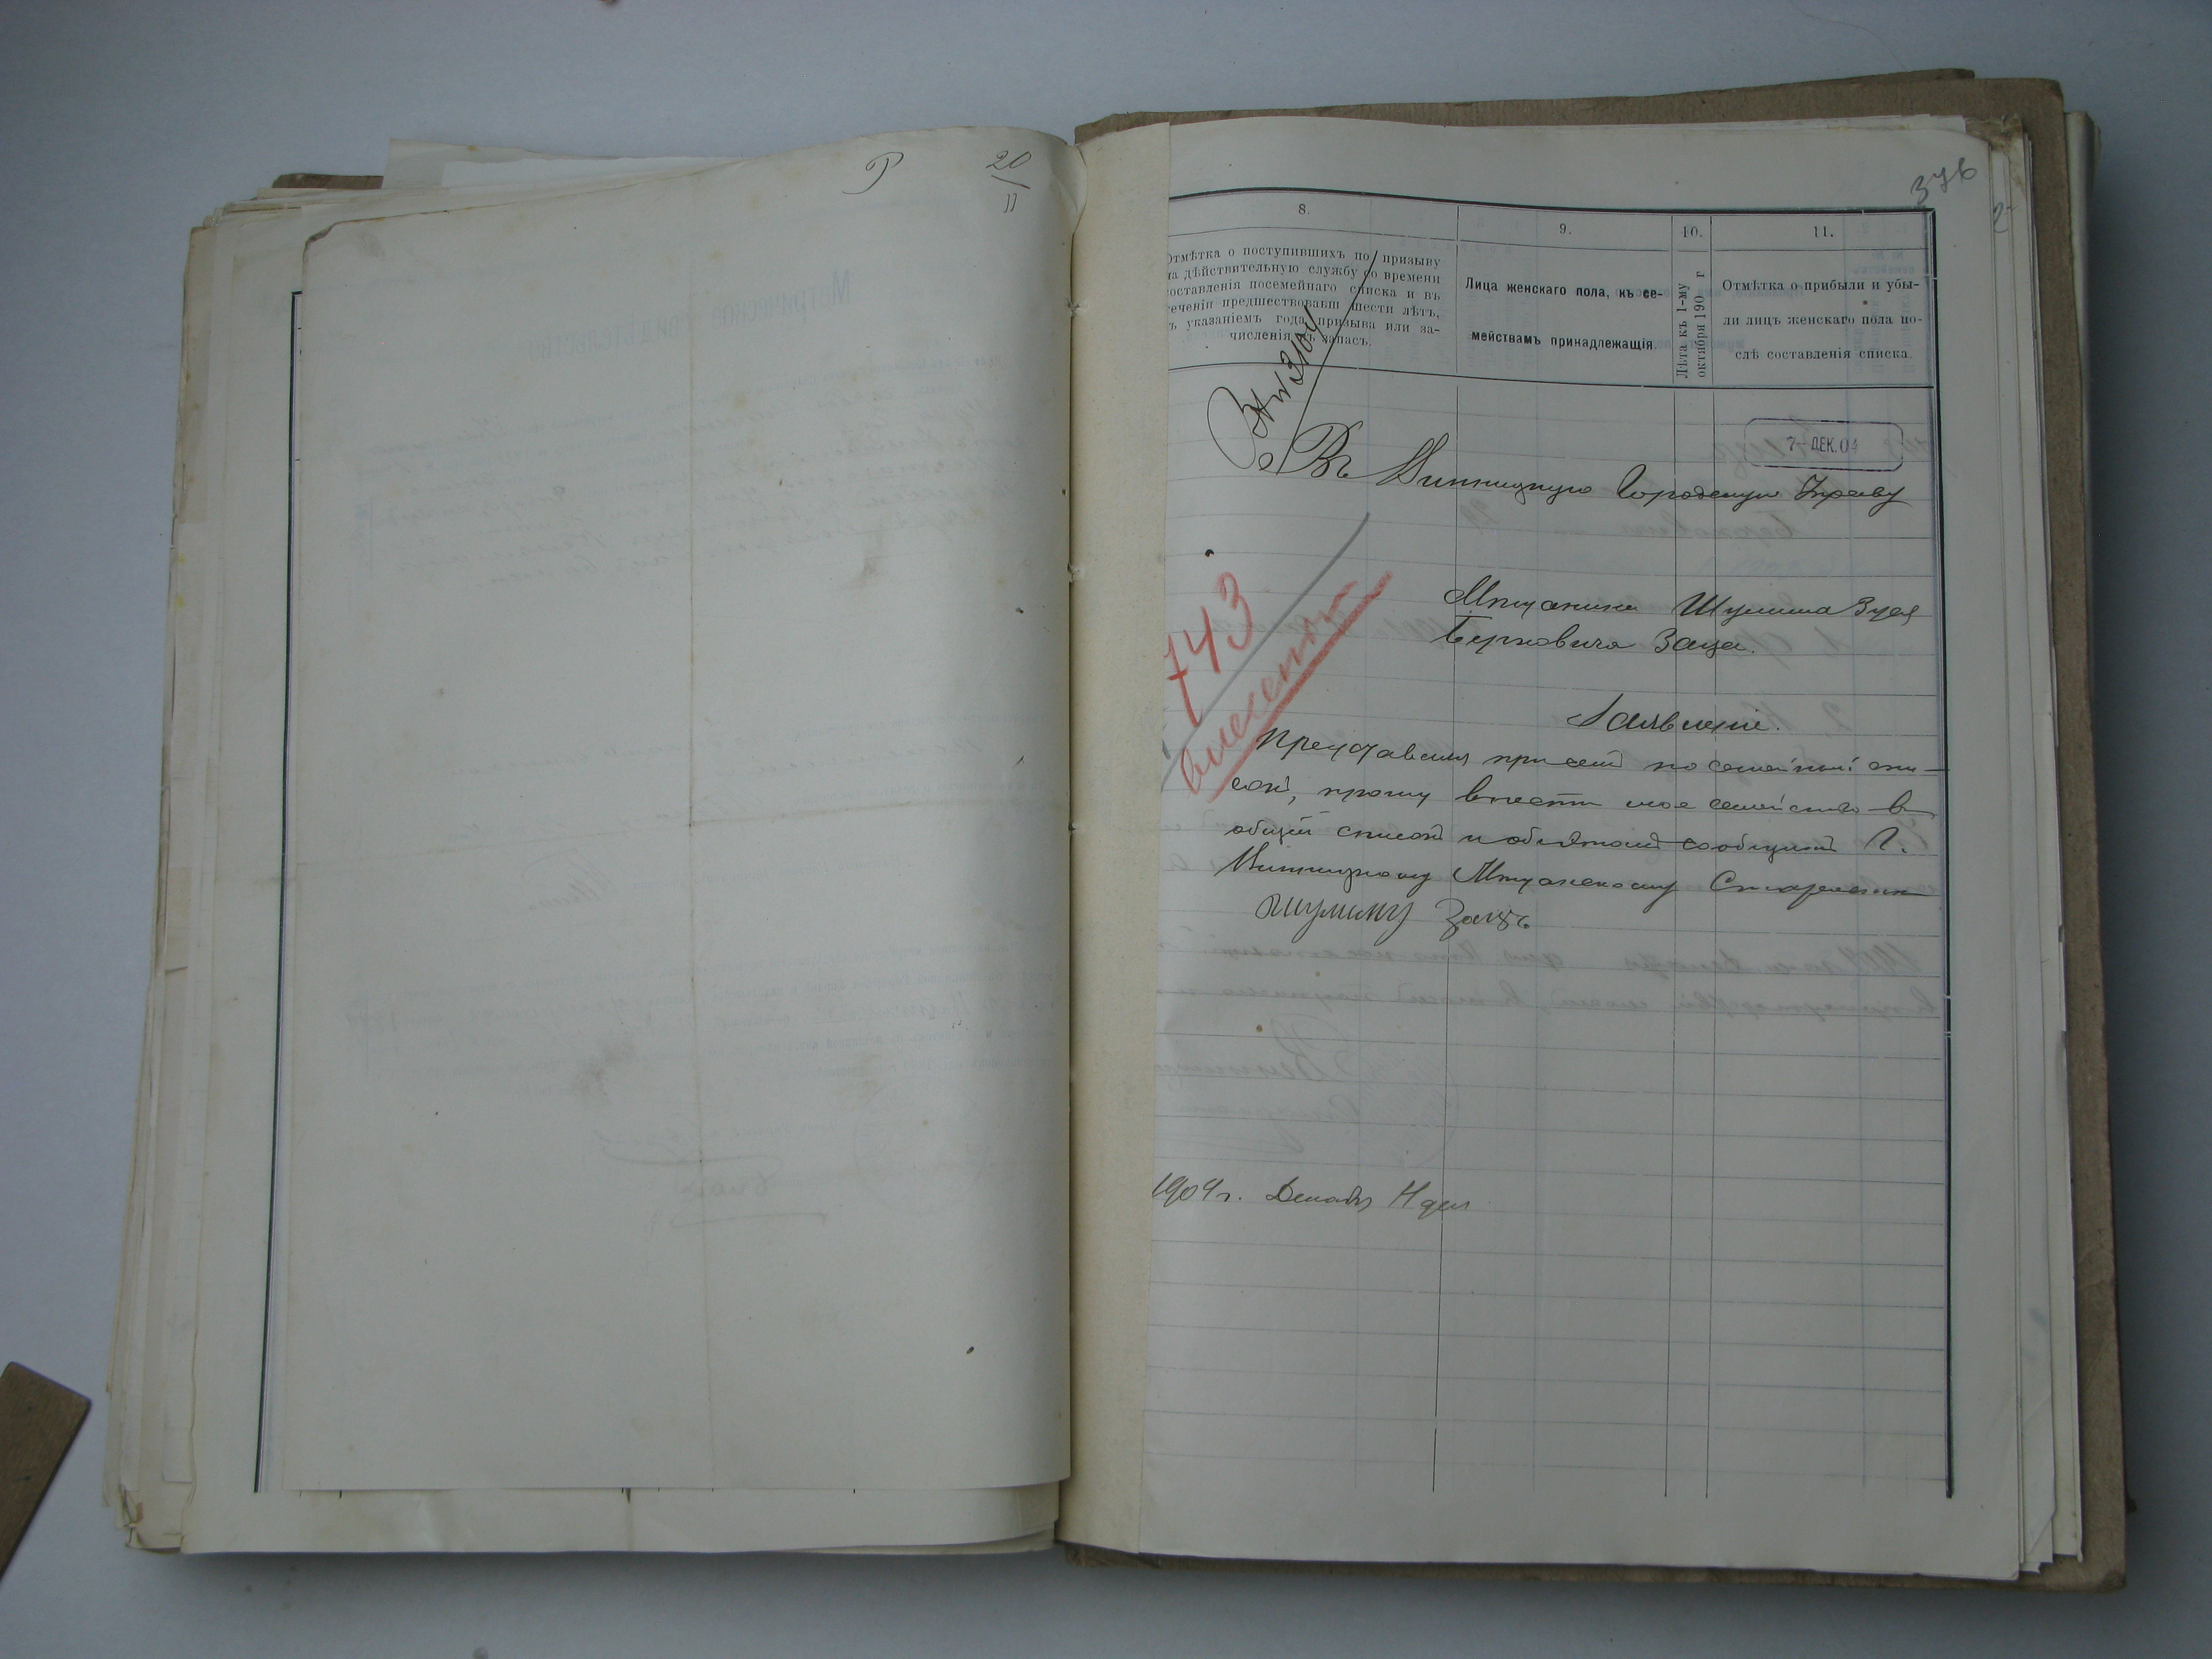 Р 20/11
376
8.
9.
10.
11.
Отмѣтка о поступившихъ по призыву
на дѣйствительную службу со времени
составленія посемейнаго списка и въ
теченіи предшествовавш шести лѣтъ,
съ указаніемъ года призыва или за-
численія въ запасъ.
Лица женскаго пола, къ се-
мействамъ принадлежащія.
Лѣта къ 1-му
октября 190 г
Отмѣтка о прибыли и убы-
ли лицъ женскаго пола по-
слѣ составленія списка.
7-ДЕК.04
Въ Винницкую Городскую Управу
743
Мѣщанина Шулима Зуся
Берковича Заца.
Заявленіе.
Представляя при семъ посемейный спи-
сокъ, прошу внести мое семейство въ
общій списокъ и объ этомъ сообщить Г.
Винницкому Мѣщанскому Старостѣ
Шулимъ Зацъ
1904 г. Декабр дня